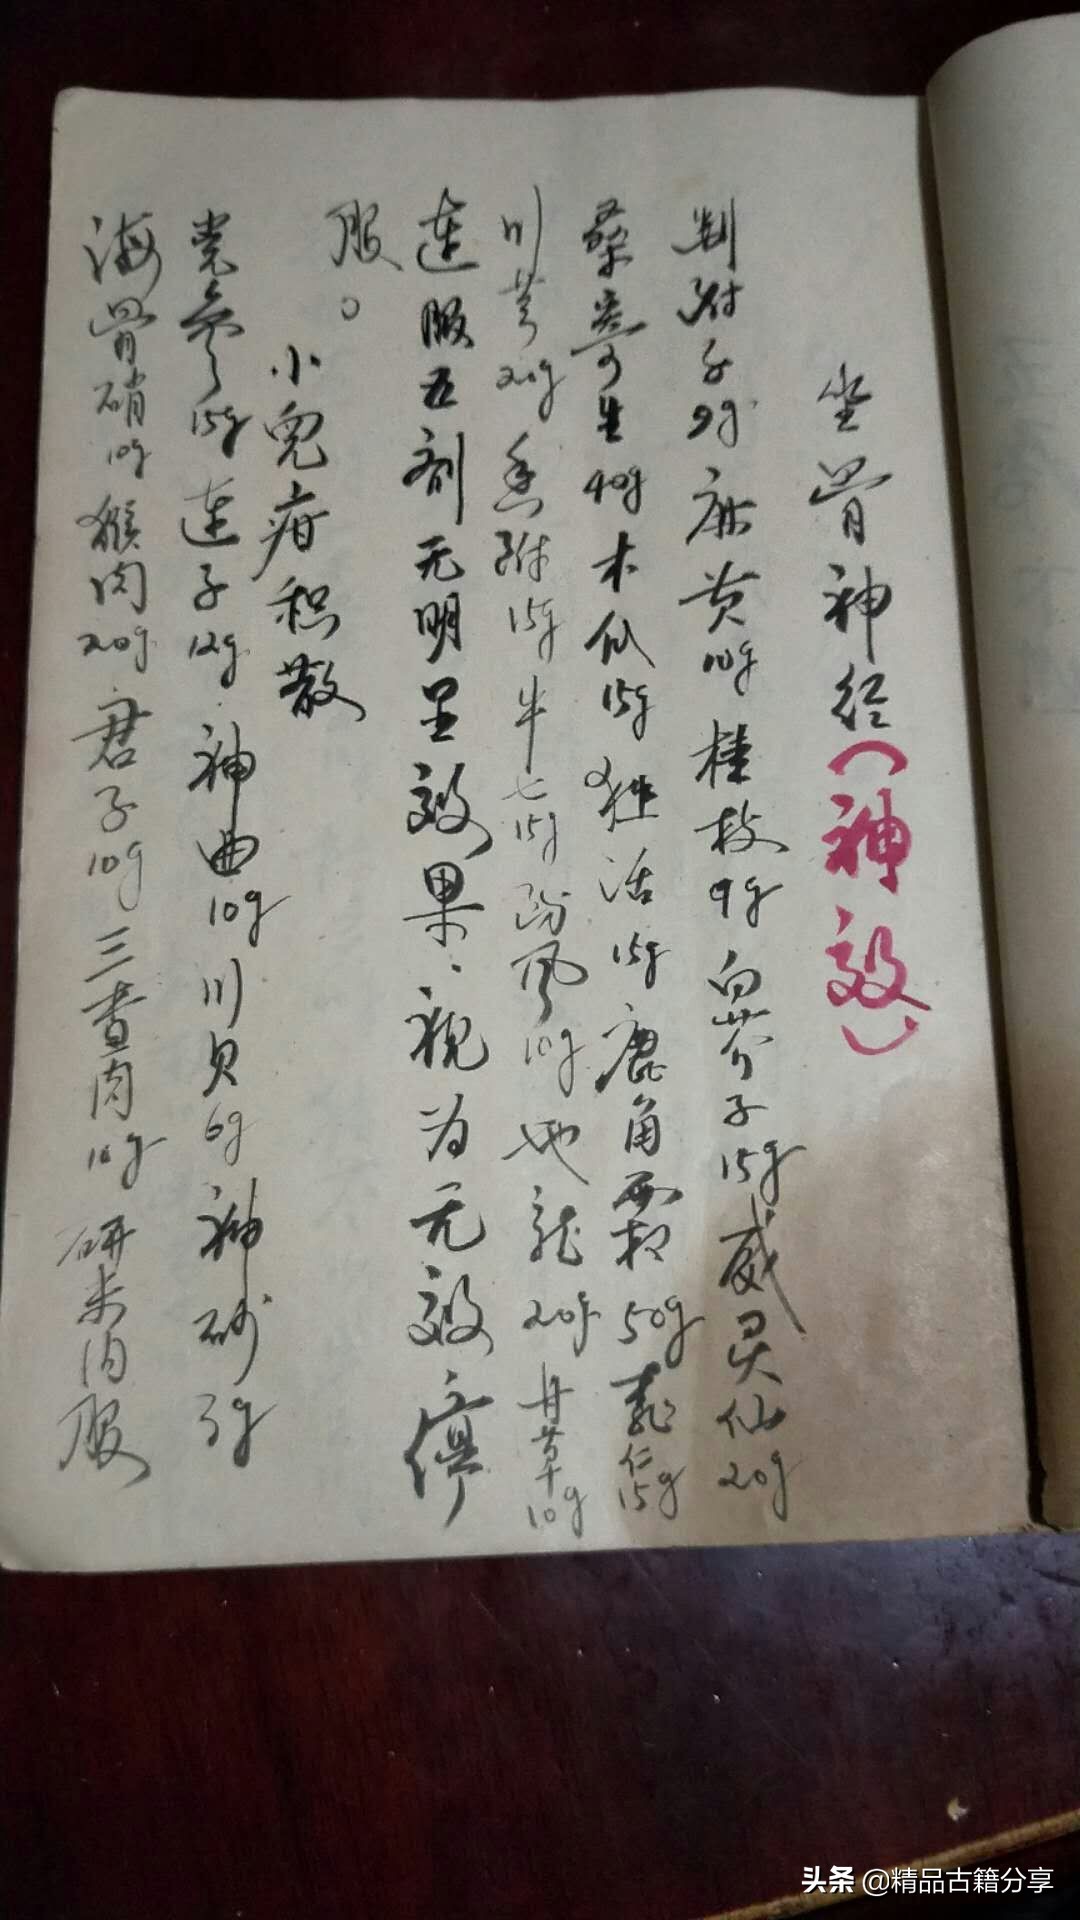 坐骨神经(神效)
制附子9g 麻黄10g 桂枝9g 白芥子15g 威灵仙20g
桑寄生40g 木瓜15g 独活15g 鹿角霜50g 仁15g
川芎20g 香附15g 牛七15g 防风10g 地龙20g 丹草10g
连服五剂无明显效果、视为无效停
服。
小儿疳积散
党参15g 连子12g 神曲10g 川贝6g 神砂3g
海骨硝10g 猴肉20g 君子10g 三查肉10g 研末内服
头条 @精品古籍分享